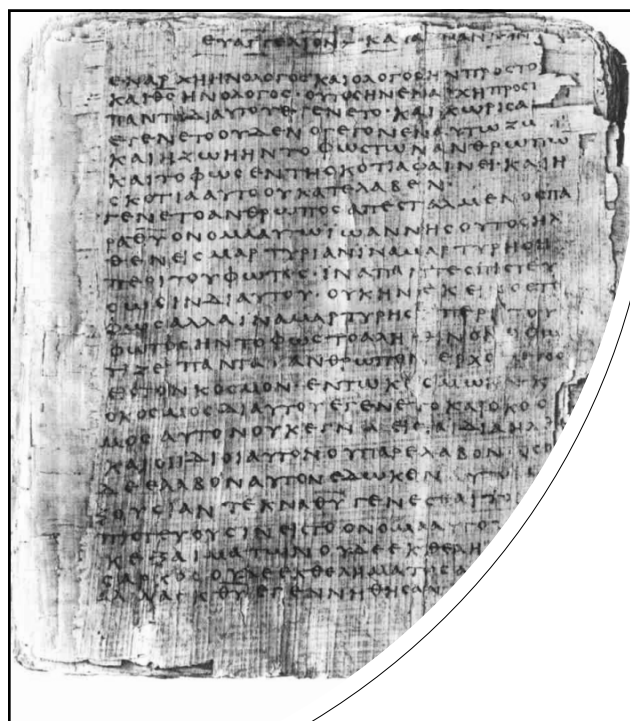 ΕΥΑΓΓΕΛΙΟΝ ΚΑΤΑ
ΕΝΑΡΧΗΗΝΟΛΟΓΟϹΚΑΙΟΛΟΓΟϹΗΝΠΡΟϹΤΟ
ΚΑΙΘ̅Ϲ̅ΗΝΟΛΟΓΟϹ·ΟΥΤΟϹΗΝΕΝΑΡΧΗΠΡΟϹΤ
ΠΑΝΤΑΔΙΑΥΤΟΥΕΓΕΝΕΤΟ·ΚΑΙΧΩΡΙϹΑ
ΕΓΕΝΕΤΟΟΥΔΕΝΟΓΕΓΟΝΕΝΑΥΤΩΖΩ
ΚΑΙΗΖΩΗΗΝΤΟΦΩϹΤΩΝΑΝΘΡΩΠΩ
ΚΑΙΤΟΦΩϹΕΝΤΗϹΚΟΤΙΑΦΑΙΝΕΙ·ΚΑΙΗ
ϹΚΟΤΙΑΑΥΤΟΟΥΚΑΤΕΛΑΒΕΝ·
ΓΕΝΕΤΟΑΝΘΡΩΠΟϹΑΠΕϹΤΑΛΜΕΝΟϹΠΑ
ΡΑΘ̅Υ̅ΟΝΟΜΑΑΥΤΩΙΩΑΝΝΗϹΟΥΤΟϹΗΛ
ΘΕΝΕΙϹΜΑΡΤΥΡΙΑΝΙΝΑΜΑΡΤΥΡΗϹΗ
ΠΕΡΙΤΟΥΦΩΤΟϹ·ΙΝΑΠΑΝΤΕϹΠΙϹΤΕΥ
ϹΩϹΙΝΔΙΑΥΤΟΥ·ΟΥΚΗΝΕΚΕΙΝΟϹΤΟ
ΦΩϹΑΛΛΑΙΝΑΜΑΡΤΥΡΗϹΗΠΕΡΙΤΟΥ
ΦΩΤΟϹΗΝΤΟΦΩϹΤΟΑΛΗΘΙΝΟΝΟΦΩ
ΤΙΖΕΙΠΑΝΤΑΑΝΘΡΩΠΟΝΕΡΧΟΜΕΝΟΝ
ΕΙϹΤΟΝΚΟϹΜΟΝ·ΕΝΤΩΚΟϹΜΩΗΝΚ
ΟΚΟϹΜΟϹΔΙΑΥΤΟΥΕΓΕΝΕΤΟΚΑΙΟΚΟϹ
ΜΟϹΑΥΤΟΝΟΥΚΕΓΝΩΕΙϹΤΑΙΔΙΑΗΛΘ
ΚΑΙΟΙΙΔΙΟΙΑΥΤΟΝΟΥΠΑΡΕΛΑΒΟΝ·ΟϹΟΙ
ΔΕΕΛΑΒΟΝΑΥΤΟΝΕΔΩΚΕΝΑΥΤΟΙ
ΞΟΥϹΙΑΝΤΕΚΝΑΘ̅Υ̅ΓΕΝΕϹΘΑΙΤΟΙ
ΠΙϹΤΕΥΟΥϹΙΝΕΙϹΤΟΟΝΟΜΑΑΥΤΟΥ
ΚΕΞΑΙΜΑΤΩΝΟΥΔΕΕΚΘΕΛΗ
ϹΑΡΚΟϹΟΥΔΕΕΚΘΕΛΗΜΑΤΟϹΑ
ΑΛΛΑΕΚΘ̅Υ̅ΕΓΕΝΝΗΘΗϹΑΝ